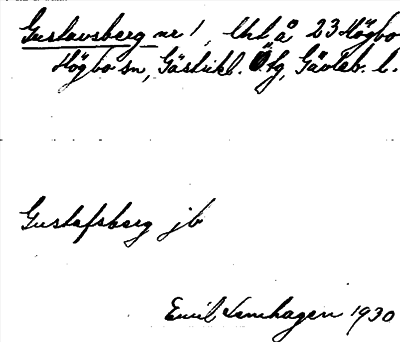 Gustavsberg nr 1, lht å 23 Högbo
Högbo sn, Gästrikl. Ö. fg, Gävleb. l.
Gustafsberg jb
Emil Lennhagen 1930